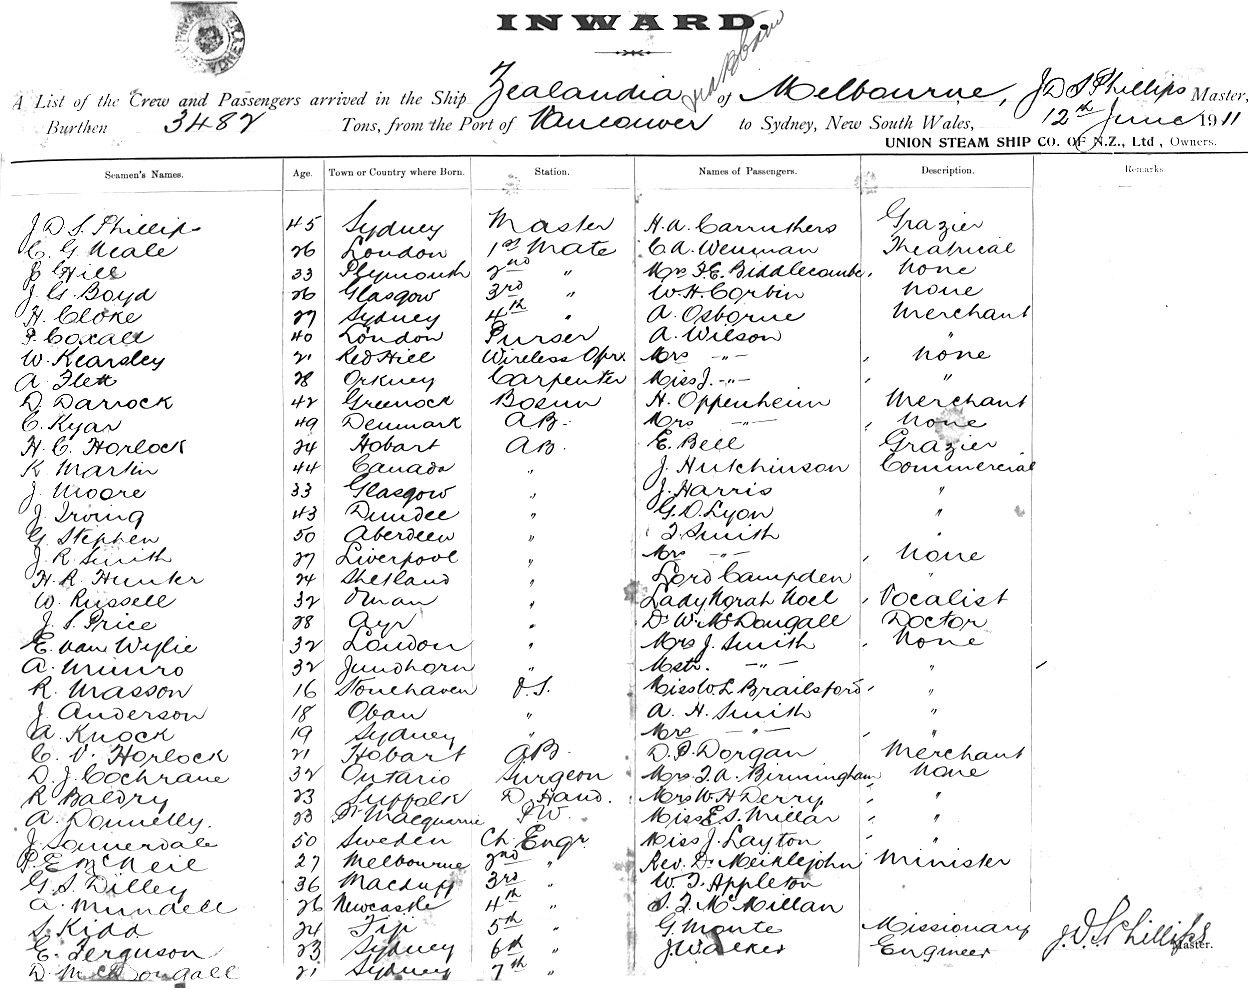 INWARD.
A List of the Crew and Passengers arrived in the Ship Zealandia of Melbourne, J D S Phillips Master,
Burthen 3482 Tons, from the Port of Vancouver to Sydney, New South Wales, 12th June 1911
UNION STEAM SHIP CO. OF N.Z., Ltd., Owners.
Seamen's Names. Age. Town or Country where Born. Station. Names of Passengers. Description. Remarks
J D S Phillips 45 Sydney Master H. A. Carruthers Grazier
C. G Neale 26 London 1st Mate C. A. Wenman Theatrical
Hill 33 Plymouth 2nd " Mrs F. E. Biddlecombe, None
J. G. Boyd 26 Glasgow 3rd " W. H. Corbin None
H. Cloke 27 Sydney 4th " A. Osborne Merchant
F. Coxall 40 London Purser A. Wilson "
W. Kearsley 21 Red Hill Wireless Opr. Mrs -"- , None
A. Flett 28 Orkney Carpenter Miss J. -"- , "
D. Darrock 42 Greenock Bosun H. Oppenheim Merchant
C. Kyar 49 Denmark AB. Mrs -"- , None
H. C. Horlock 24 Hobart AB. E. Bell Grazier
K. Martin 44 Canada " J. Hutchinson Commercial
J. Moore 33 Glasgow " J. Harris "
J. Irving 43 Dundee " G. D. Lyon "
G. Stephen 50 Aberdeen " T. Smith "
J. R. Smith 27 Liverpool " Mrs -"- , None
H. R. Hunter 24 Shetland " Lord Campden "
W. Russell 32 Oman " Lady Norah Noel , Vocalist
J. S. Price 28 Ayr " Dr W. McDougall Doctor
E. van Wylie 32 London " Mrs J. Smith , None
A. Munro 32 " Mstr. -"- "
R. Masson 16 Stonehaven O.S. Miss W. L. Brailsford , "
J. Anderson 18 Oban " A. H. Smith "
A. Knock 19 Sydney " Mrs -"- , "
C. V. Horlock 21 Hobart AB. D. P. Dorgan Merchant
D. J. Cochrane 32 Ontario Surgeon Mrs T. A. Birmingham , None
R. Baldry 23 Suffolk D. Hand. Mrs W H Derry , "
A. Donnelly. 23 Pt Macquarie P.W. Miss E. S. Millar , "
J. Somerdale 50 Sweden Ch. Engr. Miss J. Layton , "
P. E. McNeil 27 Melbourne 2nd " Rev. Dr Meiklejohn Minister
G. S. Dilley 36 Macduff 3rd " W. T. Appleton
A. Mundell 26 Newcastle 4th " S. T. McMillan
S. Kidd 24 Fiji 5th " G. Monte Missionary
E. Ferguson 23 Sydney 6th " J. Walker Engineer
D. McDougall 21 Sydney 7th "
J. D. S Phillips
Master.